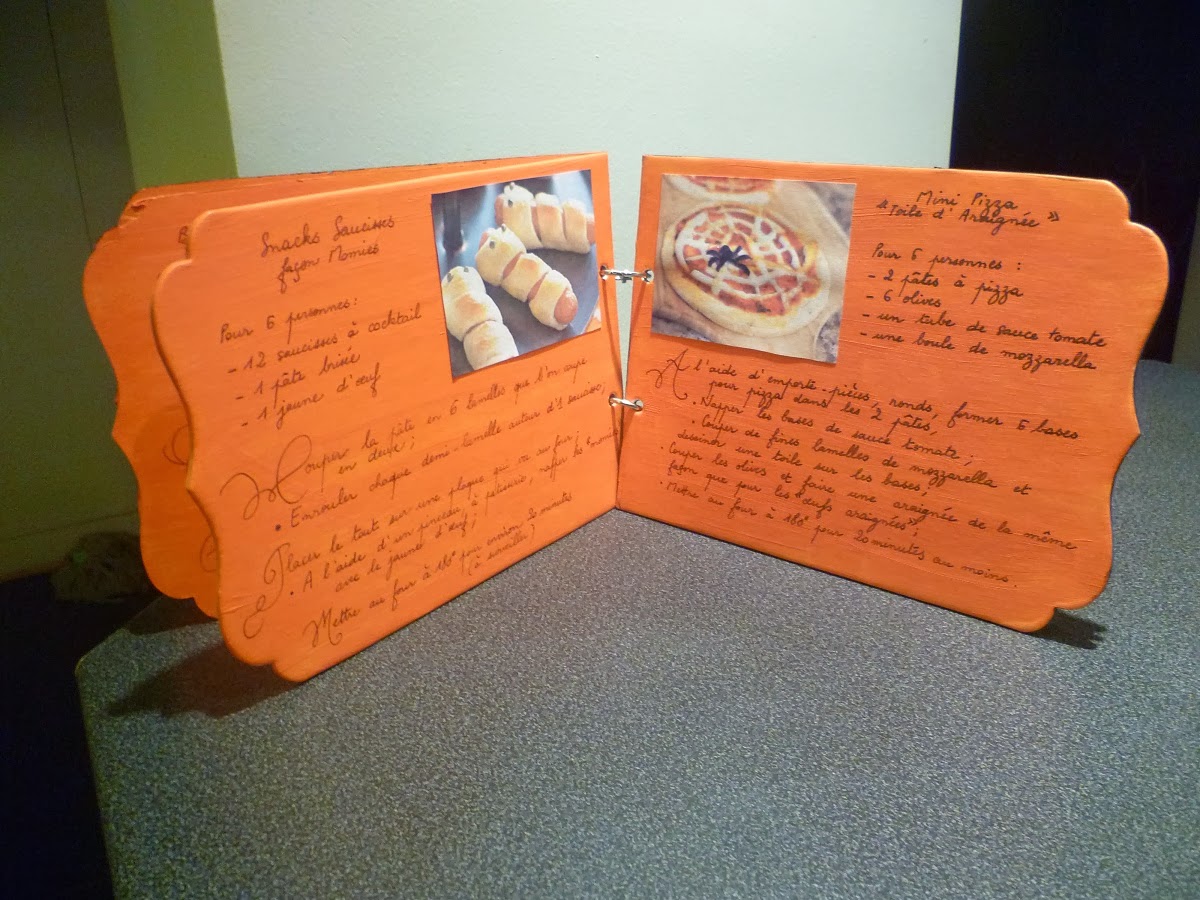 Snacks Saucisses
façon Momies
Pour 6 personnes:
- 12 saucisses à cocktail
- 1 pâte brisée
- 1 jaune d'œuf
Couper la pâte en 6 lamelles que l'on coupe
en deux ;
• Enrouler chaque demi-lamelle autour d'1 saucisse,
Placer le tout sur une plaque qui va au four ;
• A l'aide d'un pinceau à patisserie, napper les momies
avec le jaune d'œuf,
Mettre au four à 180° pour environ 20 minutes
(à surveiller)
Mini Pizza
"Toile d'Araignée"
Pour 6 personnes :
- 2 pâtes à pizza
- 6 olives
- un tube de sauce tomate
- une boule de mozzarella
A l'aide d'emporte-pièces, ronds, former 6 bases
pour pizza dans les 2 pâtes,
• Napper les bases de sauce tomate ;
• Couper de fines lamelles de mozzarella et
dessiner une toile sur les bases,
• Couper les olives et faire une araignée de la même
façon que pour les "œufs araignées",
• Mettre au four à 180° pour 20 minutes au moins.